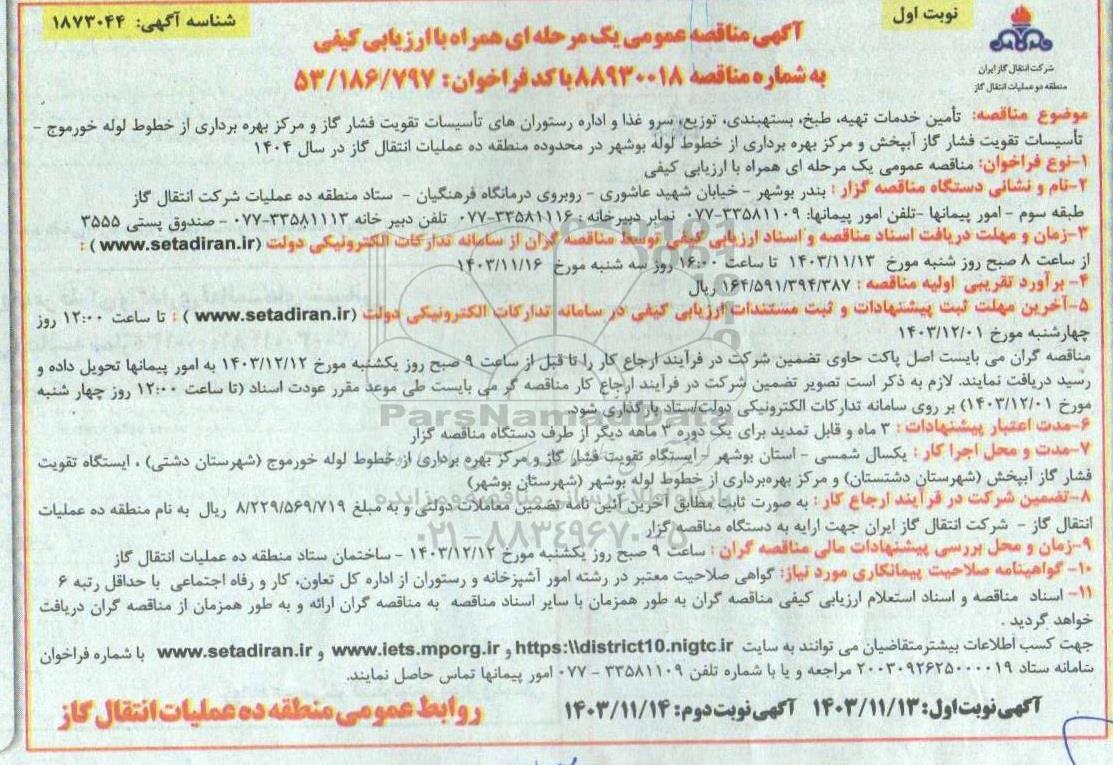 نوبت اول
شناسه آگهی: ۱۸۷۳۰۴۴
شرکت انتقال گاز ایران
منطقه ده عملیات انتقال گاز
آگهی مناقصه عمومی یک مرحله ای همراه با ارزیابی کیفی
به شماره مناقصه ۸۸۹۳۰۰۱۸ با کد فراخوان: ۵۳/۱۸۶/۷۹۷
موضوع مناقصه: تأمین خدمات تهیه، طبخ، بستهبندی، توزیع، سرو غذا و اداره رستوران های تأسیسات تقویت فشار گاز و مرکز بهره برداری از خطوط لوله خورموج –
تأسیسات تقویت فشار گاز آبپخش و مرکز بهره برداری از خطوط لوله بوشهر در محدوده منطقه ده عملیات انتقال گاز در سال ۱۴۰۴
۱-نوع فراخوان: مناقصه عمومی یک مرحله ای همراه با ارزیابی کیفی
۲-نام و نشانی دستگاه مناقصه گزار : بندر بوشهر – خیابان شهید عاشوری – روبروی درمانگاه فرهنگیان – ستاد منطقه ده عملیات شرکت انتقال گاز
طبقه سوم – امور پیمانها –تلفن امور پیمانها: ۳۳۵۸۱۱۰۹–۰۷۷ نمابر دبیرخانه : ۳۳۵۸۱۱۱۶–۰۷۷ تلفن دبیر خانه ۳۳۵۸۱۱۱۳–۰۷۷ – صندوق پستی ۳۵۵۵
۳-زمان و مهلت دریافت اسناد مناقصه و اسناد ارزیابی کیفی توسط مناقصه گران از سامانه تدارکات الکترونیکی دولت (www.setadiran.ir) :
از ساعت ۸ صبح روز شنبه مورخ ۱۴۰۳/۱۱/۱۳ تا ساعت ۱۶:۰۰ روز سه شنبه مورخ ۱۴۰۳/۱۱/۱۶
۴- برآورد تقریبی اولیه مناقصه : ۱۶۴/۵۹۱/۳۹۴/۳۸۷ ریال
۵-آخرین مهلت ثبت پیشنهادات و ثبت مستندات ارزیابی کیفی در سامانه تدارکات الکترونیکی دولت (www.setadiran.ir ) : تا ساعت ۱۲:۰۰ روز
چهارشنبه مورخ ۱۴۰۳/۱۲/۰۱
مناقصه گران می بایست اصل پاکت حاوی تضمین شرکت در فرآیند ارجاع کار را تا قبل از ساعت ۹ صبح روز یکشنبه مورخ ۱۴۰۳/۱۲/۱۲ به امور پیمانها تحویل داده و
رسید دریافت نمایند. لازم به ذکر است تصویر تضمین شرکت در فرآیند ارجاع کار مناقصه گر می بایست طی موعد مقرر عودت اسناد (تا ساعت ۱۲:۰۰ روز چهار شنبه
مورخ ۱۴۰۳/۱۲/۰۱) بر روی سامانه تدارکات الکترونیکی دولت/ستاد بارگذاری شود.
۶-مدت اعتبار پیشنهادات : ۳ ماه و قابل تمدید برای یک دوره ۳ ماهه دیگر از طرف دستگاه مناقصه گزار
۷-مدت و محل اجرا کار : یکسال شمسی – استان بوشهر – ایستگاه تقویت فشار گاز و مرکز بهره برداری از خطوط لوله خورموج (شهرستان دشتی) ، ایستگاه تقویت
فشار گاز آبپخش (شهرستان دشتستان) و مرکز بهره‌برداری از خطوط لوله بوشهر (شهرستان بوشهر)
۸-تضمین شرکت در فرآیند ارجاع کار : به صورت ثابت مطابق آخرین آئین نامه تضمین معاملات دولتی و به مبلغ ۸/۲۲۹/۵۶۹/۷۱۹ ریال به نام منطقه ده عملیات
انتقال گاز – شرکت انتقال گاز ایران جهت ارایه به دستگاه مناقصه گزار
۹-زمان و محل بررسی پیشنهادات مالی مناقصه گران : ساعت ۹ صبح روز یکشنبه مورخ ۱۴۰۳/۱۲/۱۲ – ساختمان ستاد منطقه ده عملیات انتقال گاز
۱۰- گواهینامه صلاحیت پیمانکاری مورد نیاز: گواهی صلاحیت معتبر در رشته امور آشپزخانه و رستوران از اداره کل تعاون، کار و رفاه اجتماعی با حداقل رتبه ۶
۱۱- اسناد مناقصه و اسناد استعلام ارزیابی کیفی مناقصه گران به طور همزمان با سایر اسناد مناقصه به مناقصه گران ارائه و به طور همزمان از مناقصه گران دریافت
خواهد گردید .
جهت کسب اطلاعات بیشترمتقاضیان می توانند به سایت https:\\district10.nigtc.ir و www.iets.mporg.ir و www.setadiran.ir با شماره فراخوان
سامانه ستاد ۲۰۰۳۰۹۲۶۲۵۰۰۰۰۱۹ مراجعه و یا با شماره تلفن ۳۳۵۸۱۱۰۹ – ۰۷۷ امور پیمانها تماس حاصل نمایند.
آگهی نوبت اول: ۱۴۰۳/۱۱/۱۳ آگهی نوبت دوم: ۱۴۰۳/۱۱/۱۴
روابط عمومی منطقه ده عملیات انتقال گاز
ParsNamadData
۰۲۱-۸۸۳۴۹۶۷۰-۵